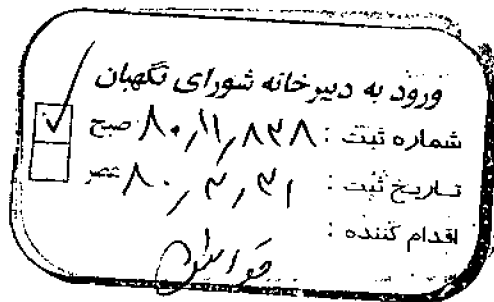 ورود به دبیرخانه شورای نگهبان
شماره ثبت : ۸۰٫۱۱٫۸۳۸ صبح
تاریخ ثبت : ۸۰٫۳٫۳۱ عصر
اقدام کننده :